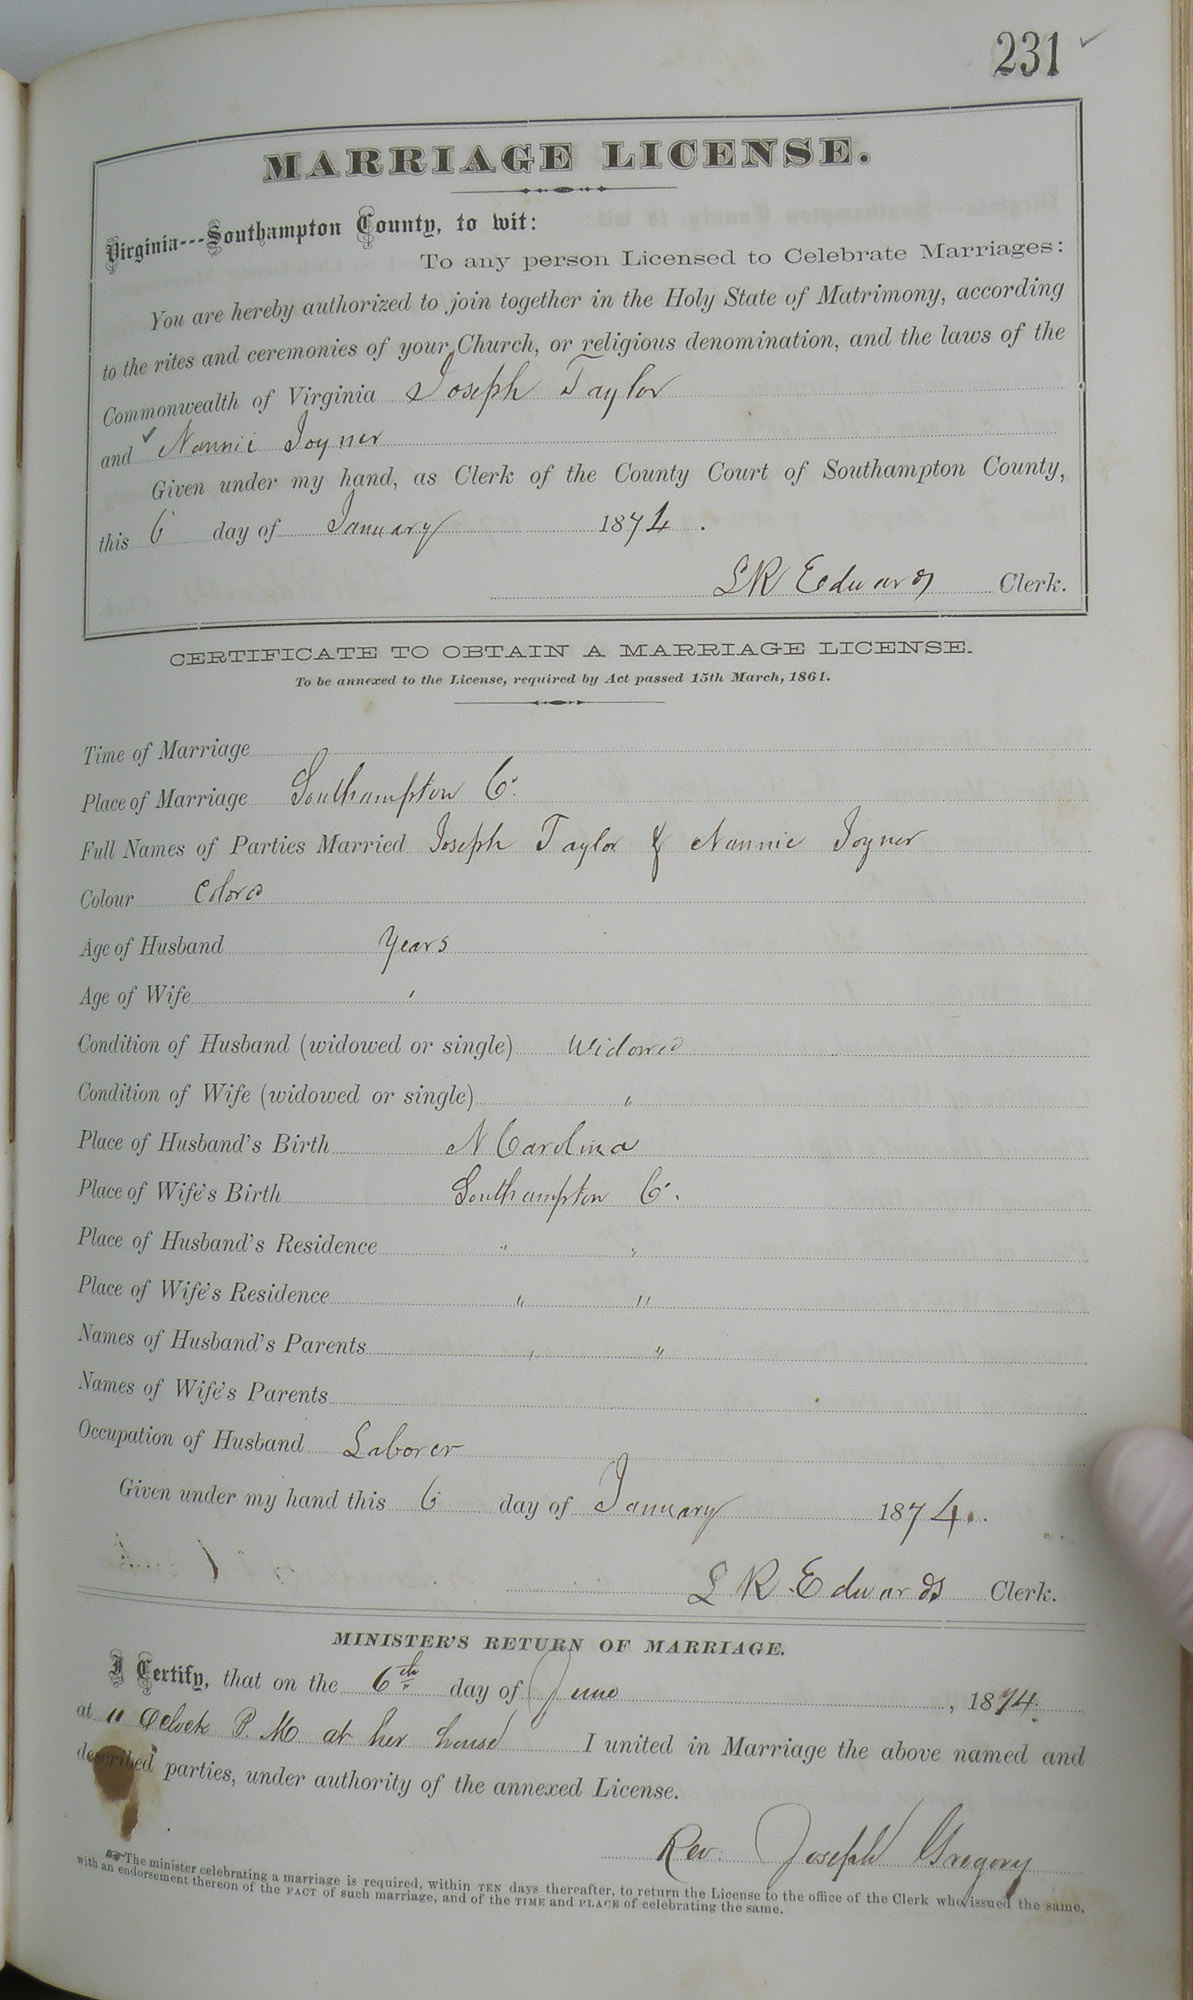 231 ✓
MARRIAGE LICENSE.
Virginia---Southampton County, to wit:
To any person Licensed to Celebrate Marriages:
You are hereby authorized to join together in the Holy State of Matrimony, according
to the rites and ceremonies of your Church, or religious denomination, and the laws of the
Commonwealth of Virginia Joseph Taylor
and ✓ Nannie Joyner
Given under my hand, as Clerk of the County Court of Southampton County,
this 6 day of January 1874.
LR Edwards Clerk.
CERTIFICATE TO OBTAIN A MARRIAGE LICENSE.
To be annexed to the License, required by Act passed 15th March, 1861.
Time of Marriage
Place of Marriage Southampton Co.
Full Names of Parties Married Joseph Taylor & Nannie Joyner
Colour Colord
Age of Husband Years
Age of Wife "
Condition of Husband (widowed or single) Widowed
Condition of Wife (widowed or single) "
Place of Husband's Birth N Carolina
Place of Wife's Birth Southampton Co.
Place of Husband's Residence " "
Place of Wife's Residence " "
Names of Husband's Parents " "
Names of Wife's Parents
Occupation of Husband Laborer
Given under my hand this 6 day of January 1874.
L R Edwards Clerk.
MINISTER'S RETURN OF MARRIAGE.
I Certify, that on the 6th day of June, 1874.
at 11 Oclock P. M at her house I united in Marriage the above named and
described parties, under authority of the annexed License.
Rev. Joseph Gregory
☞ The minister celebrating a marriage is required, within TEN days thereafter, to return the License to the office of the Clerk who issued the same,
with an endorsement thereon of the FACT of such marriage, and of the TIME and PLACE of celebrating the same.